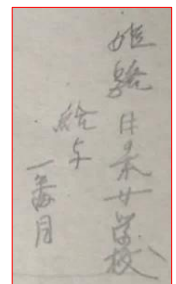 姫路日ノ本女学校
給与
一ヶ月